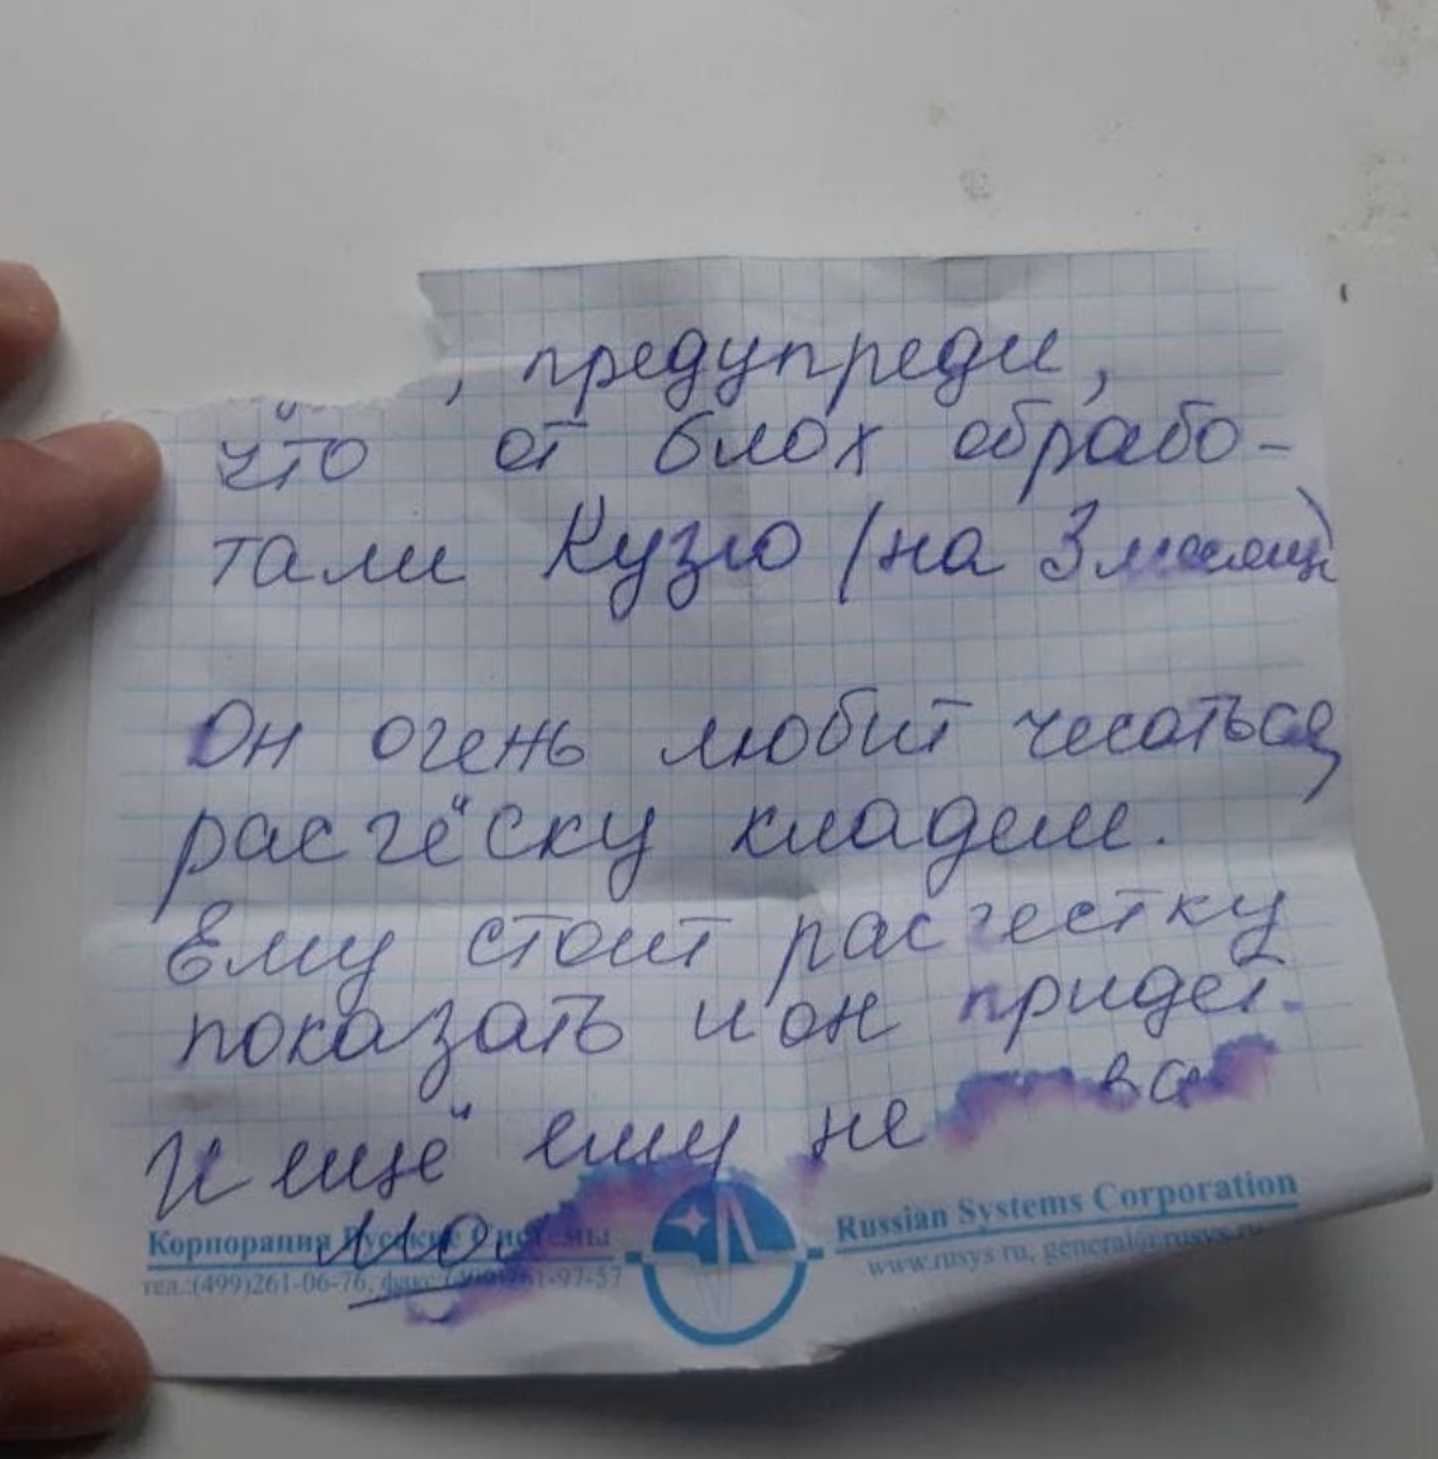 , предупреди,
что от блох обрабо-
тали Кузю (на 3 месяца)
Он очень любит чесаться,
расчёску кладем.
Ему стоит расчестку
показать и он придет.
И ещё ему не
Корпорация Русские Системы
тел.:(499)261-06-76, факс:(499)261-97-57
Russian Systems Corporation
www.rusys.ru, general@rusys.ru